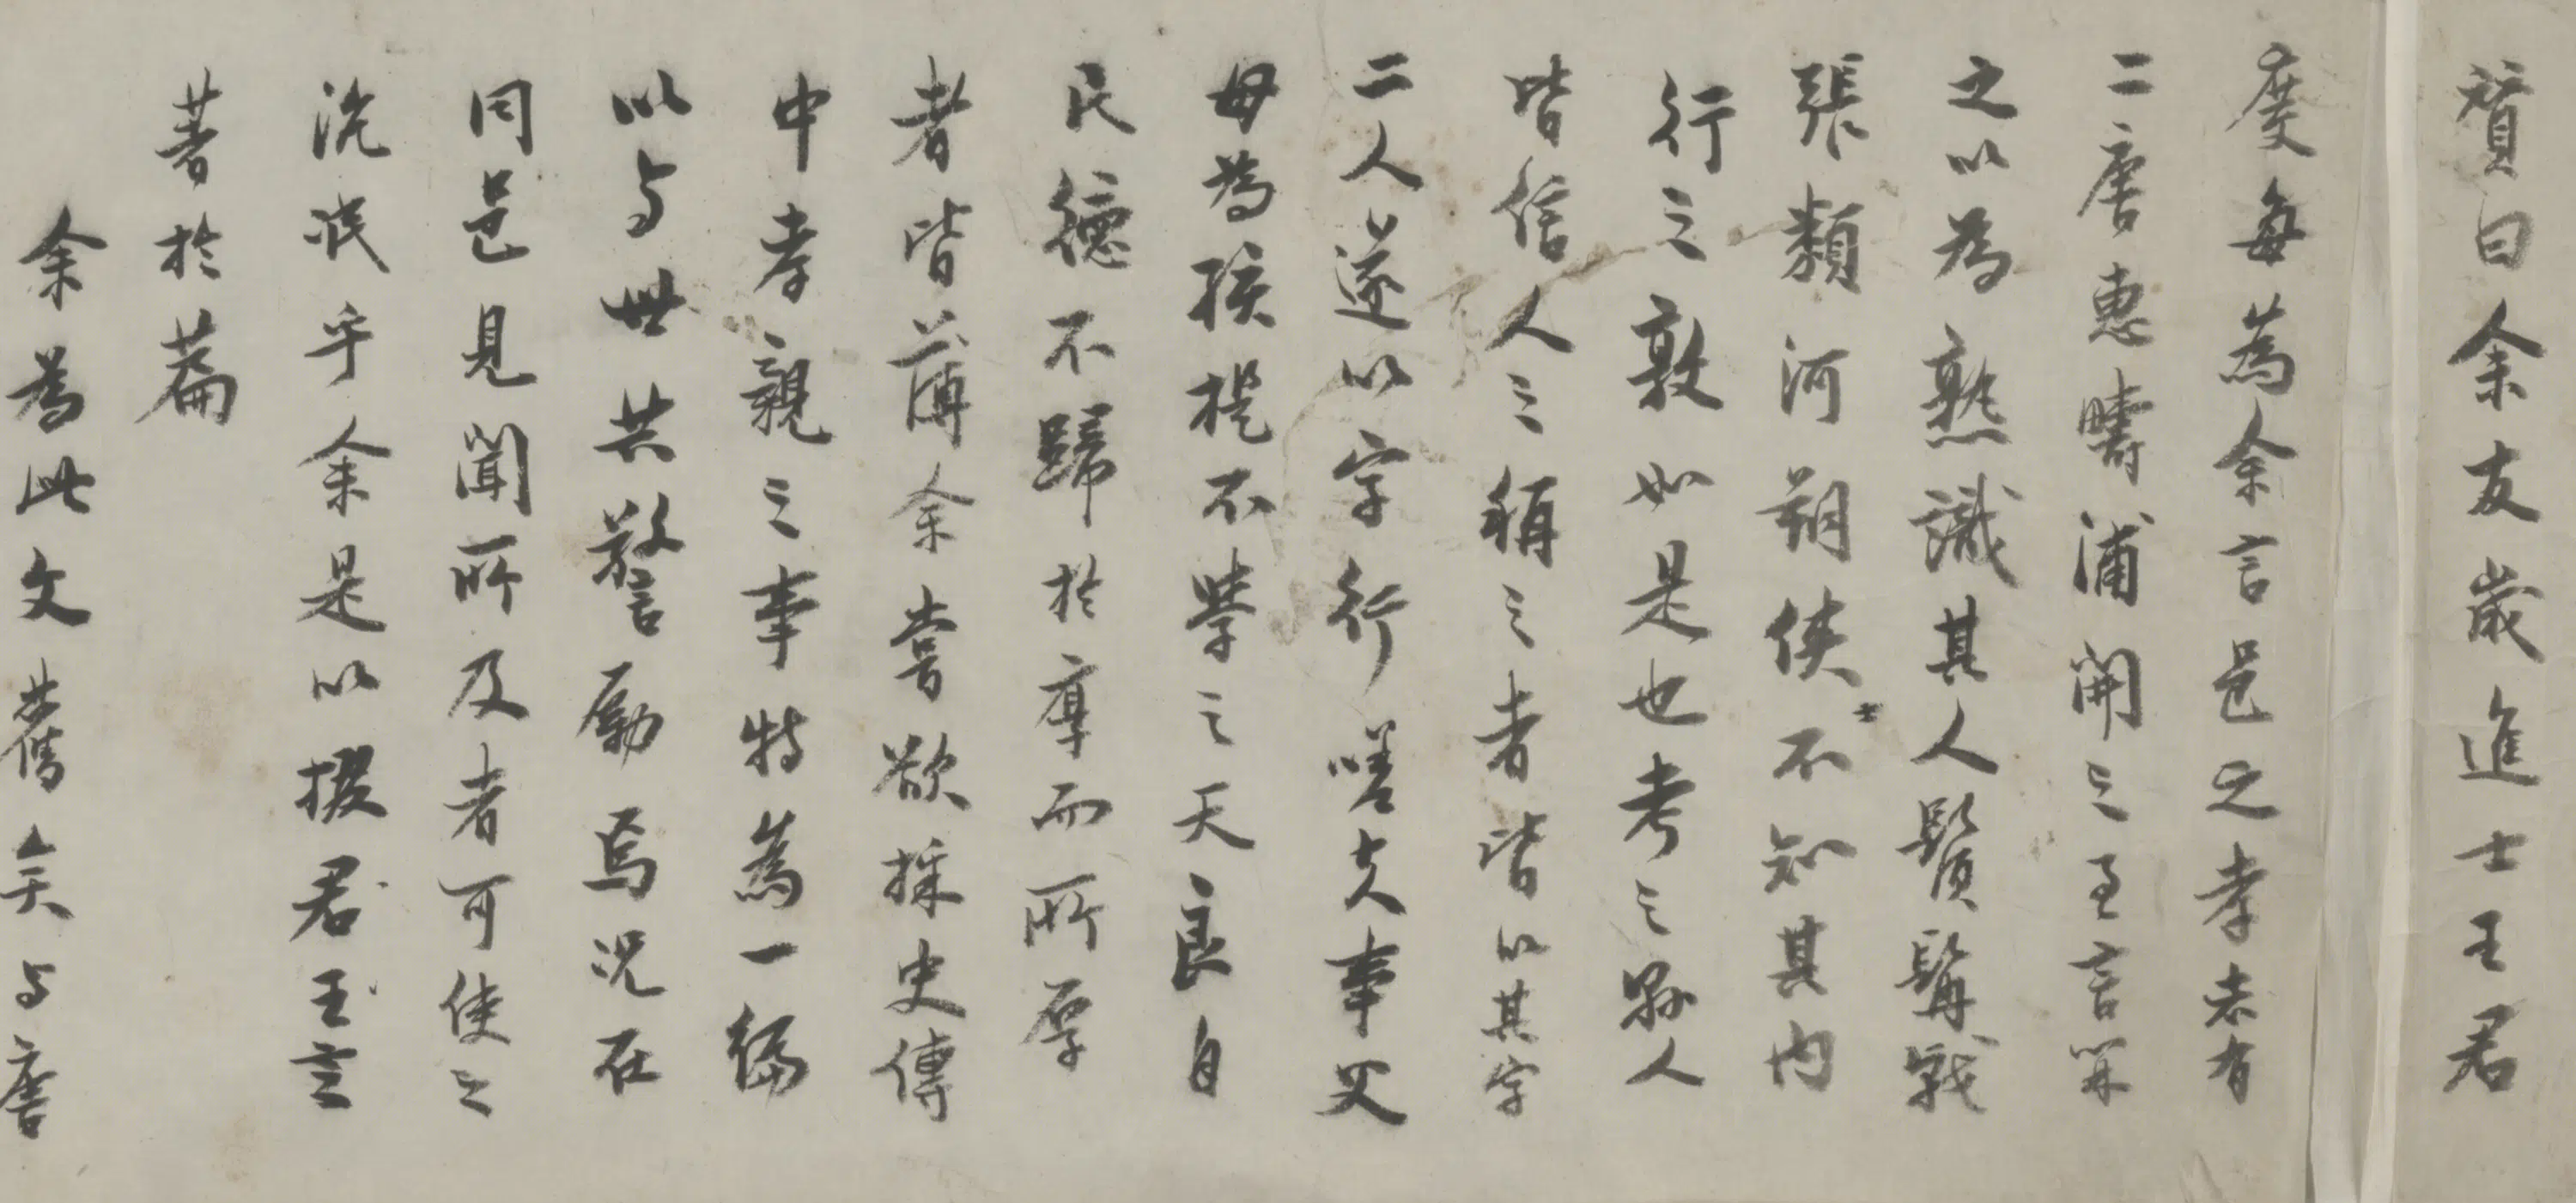 贊曰余友歲進士王君
慶每為余言邑之孝者有
二唐惠疇浦開之至言笄
之以為熟識其人鬢髯戟
張類河朔俠士不知其内
行之敦如是也考之縣人
皆信人之稱之者皆以其字
二人遂以字行嗟夫事父
母為孩提不學之天良自
民德不歸於厚而所厚
者皆薄余嘗欲採史傳
中孝親之事特為一編
以与世共警勵焉況在
同邑見聞所及者可使之
沈泯乎余是以掇君玉言
著於篇
余為此文舊矣与唐